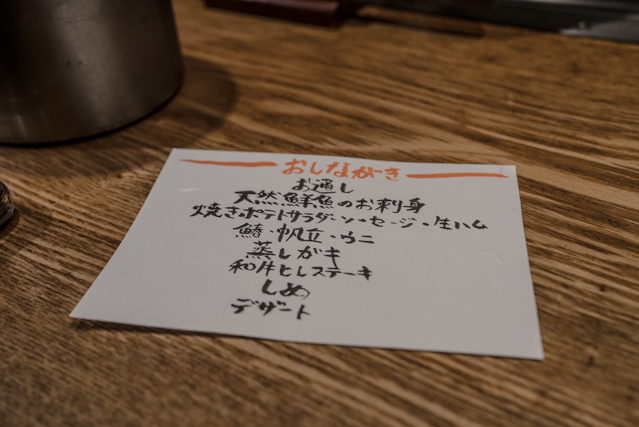 おしながき
お通し
天然鮮魚のお刺身
焼きポテトサラダ・ソーセージ・生ハム
鰆・帆立・ウニ
蒸しガキ
和牛ヒレステーキ
しめ
デザート